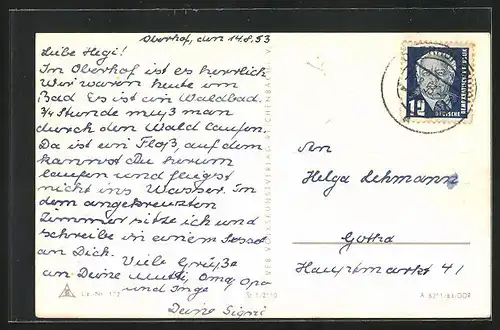 Oberhof, den 14.8.53
Liebe Hegi!
In Oberhof ist es herrlich
Wir waren heute im
Bad Es ist ein Waldbad.
3/4 Stunde muß man
durch den Wald laufen.
Da ist ein Floß, auf dem
kannst du herum
laufen und fliegst
nicht ins Wasser. Im
dem angekreuzten
Zimmer sitze ich und
schreibe in einem
an Dich. Viele Grüße
an Deine Mutti, Oma, Opa
und Inge
Deine Sigrid
12
DEUTSCHE
An
Helga Lehmann
Gotha
Hauptmarkt 41